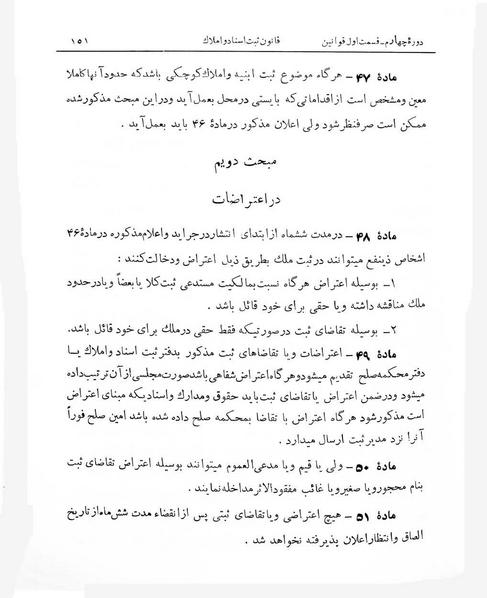 دورهٔ چهارم - قسمت اول قوانین قانون ثبت اسناد و املاك ۱۵۱
مادهٔ ۴۷ - هر گاه موضوع ثبت ابنیه و املاك كوچكی باشد كه حدود آنها كاملا
معین و مشخص است از اقداماتی كه بایستی در محل بعمل آید و در این مبحث مذكور شده
ممكن است صرفنظر شود ولی اعلان مذكور در مادهٔ ۴۶ باید بعمل آید .
مبحث دویم
در اعتراضات
مادهٔ ۴۸ - در مدت ششماه از ابتدای انتشار در جراید و اعلام مذكوره در مادهٔ ۴۶
اشخاص ذینفع میتوانند در ثبت ملك بطریق ذیل اعتراض و دخالت كنند :
۱- بوسیله اعتراض هر گاه نسبت بمالكیت مستدعی ثبت كلا یا بعضاً و یا در حدود
ملك مناقشه داشته و یا حقی برای خود قائل باشد .
۲- بوسیله تقاضای ثبت در صورتیكه فقط حقی در ملك برای خود قائل باشد.
مادهٔ ۴۹ - اعتراضات و یا تقاضاهای ثبت مذكور بدفتر ثبت اسناد و املاك یا
دفتر محكمه صلح تقدیم میشود و هر گاه اعتراض شفاهی باشد صورت مجلسی از آن ترتیب داده
میشود و در ضمن اعتراض یا تقاضای ثبت باید حقوق و مدارك و اسنادیكه مبنای اعتراض
است مذكور شود هر گاه اعتراض یا تقاضا بمحكمه صلح داده شده باشد امین صلح فوراً
آنرا نزد مدیر ثبت ارسال میدارد .
مادهٔ ۵۰ - ولی یا قیم و یا مدعی العموم میتوانند بوسیله اعتراض تقاضای ثبت
بنام محجور و یا صغیر و یا غائب مفقودالاثر مداخله نمایند .
مادهٔ ۵۱ - هیچ اعتراضی و یا تقاضای ثبتی پس از انقضاء مدت شش ماه از تاریخ
الصاق و انتظار اعلان پذیرفته نخواهد شد .